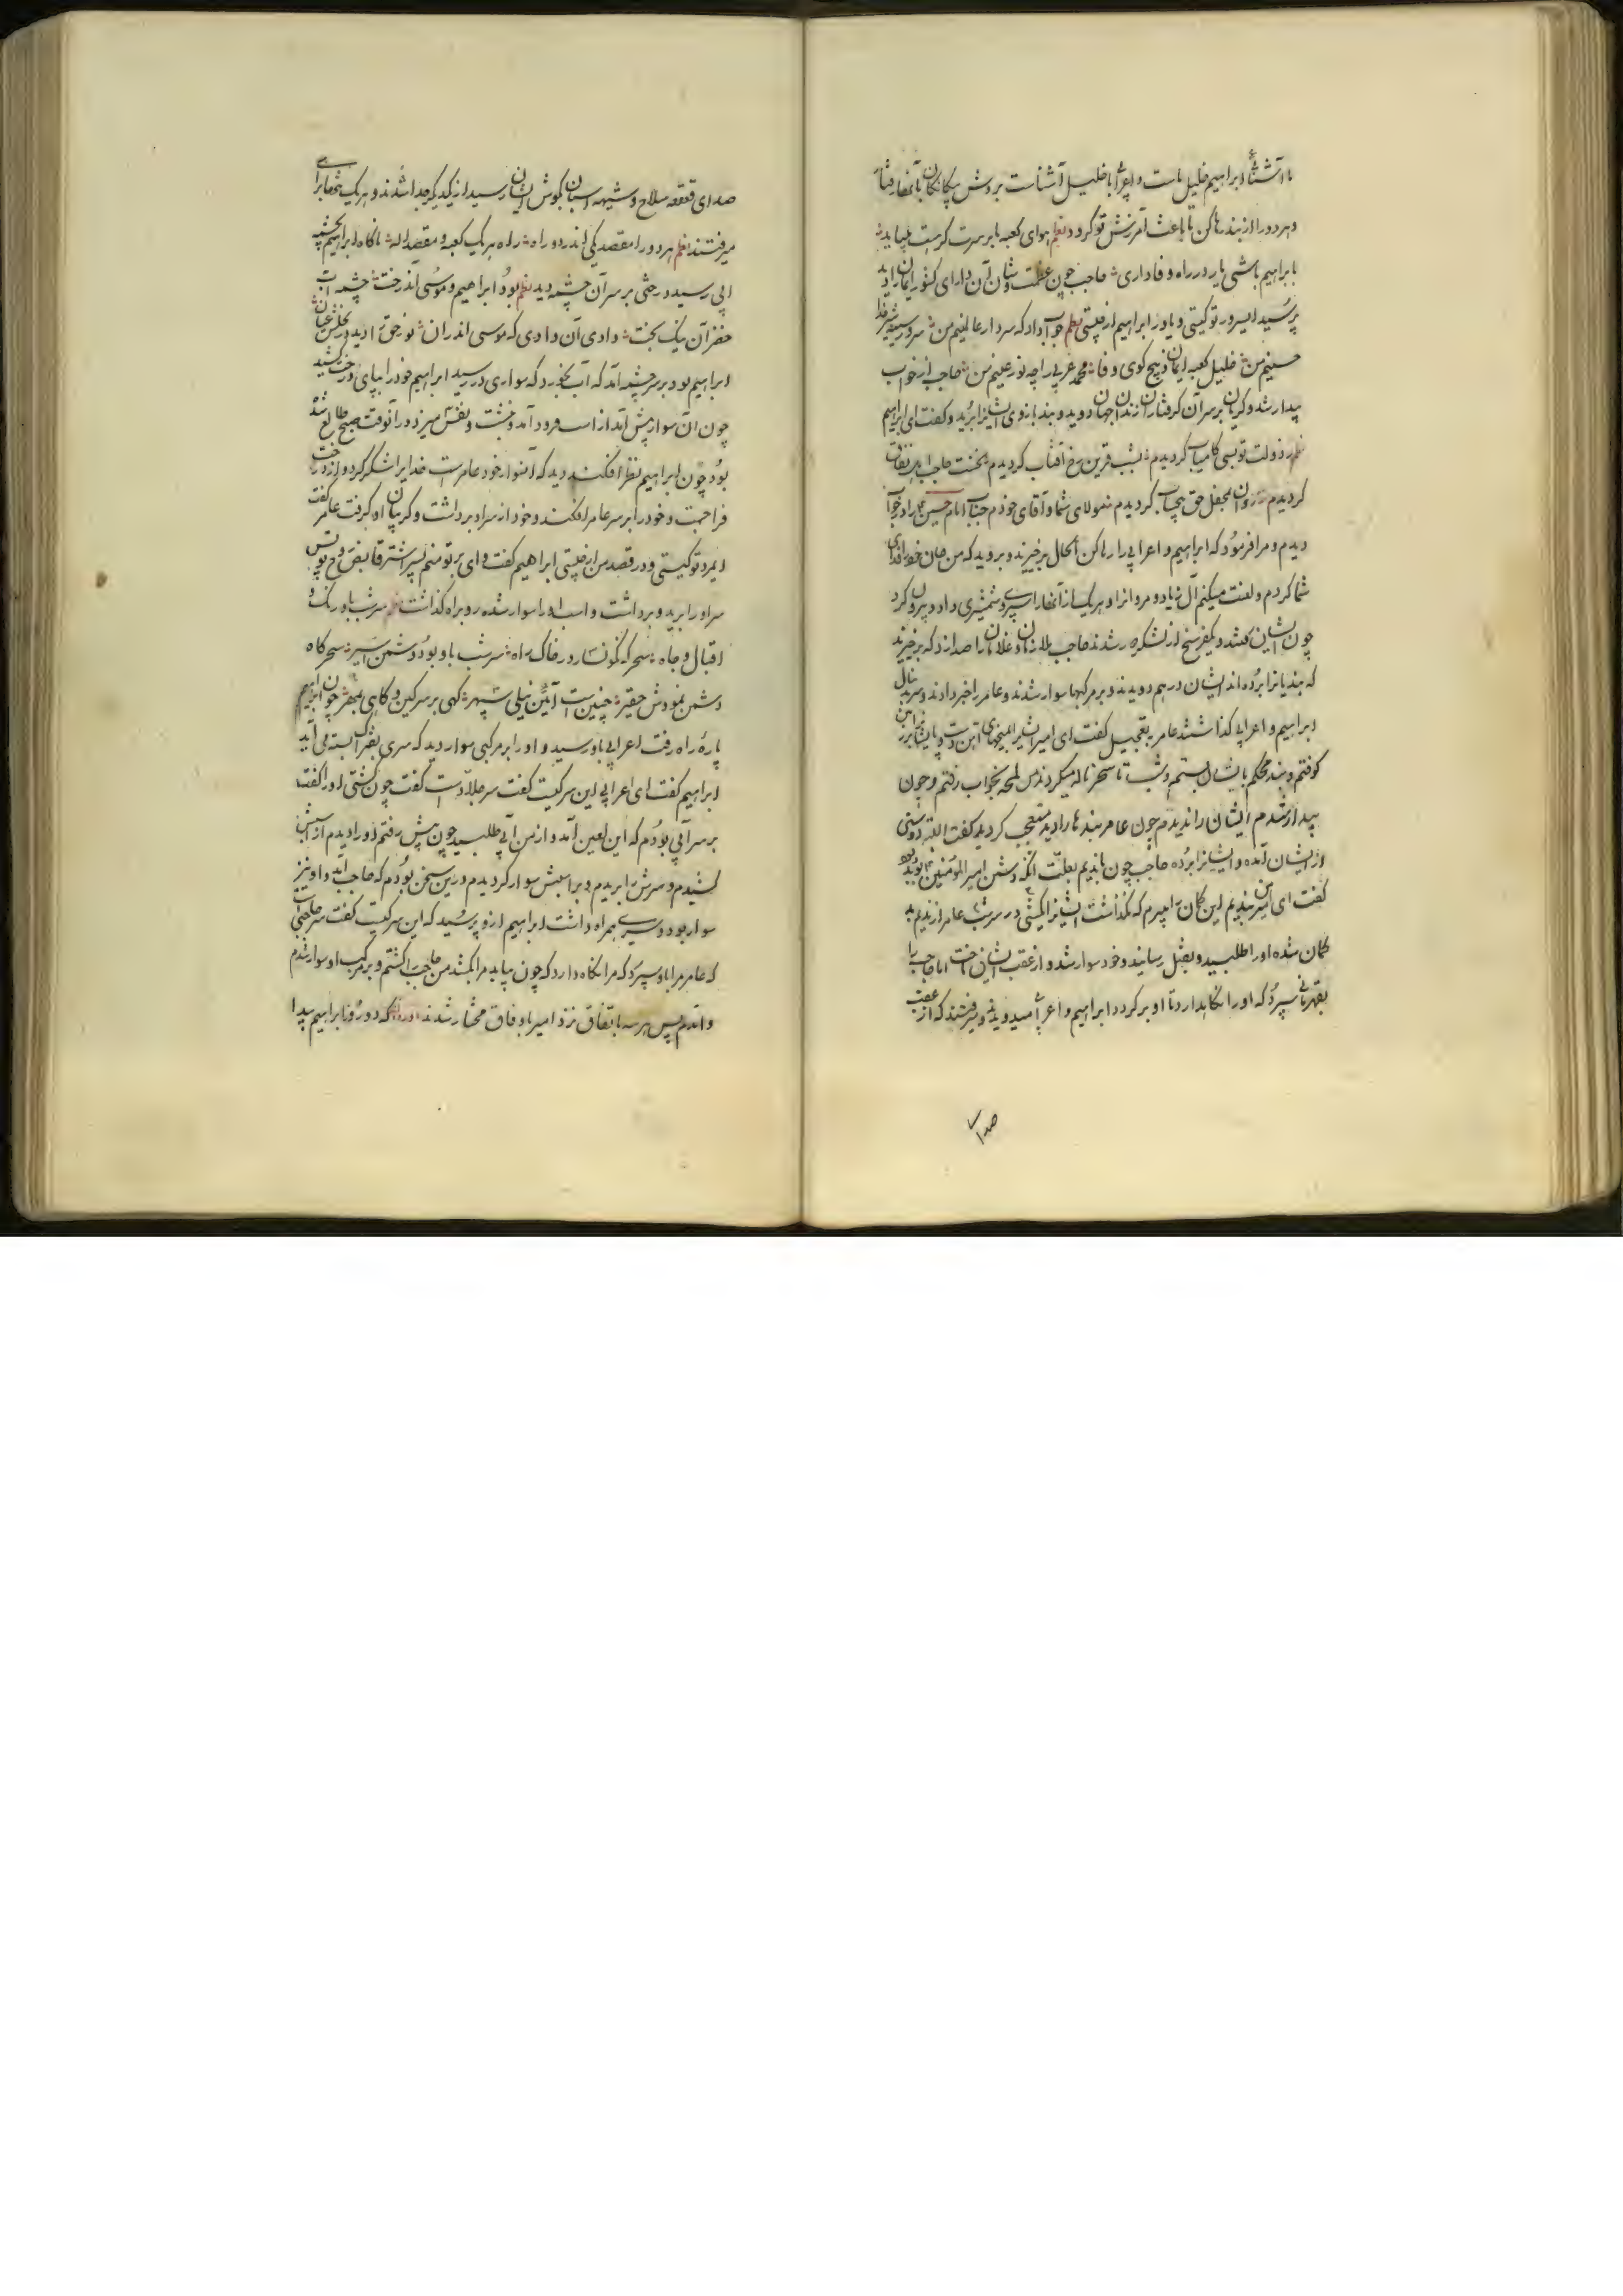 با آشنائی ابراهیم خلیل ماست و اعرابی با خلیل آشناست بروش بیکانکان با آنها رفتار
و هر دو را از بند رها کن تا باعث آمرزش تو کردد نظم هوای کعبه بر سرت
بابراهیم باشی یار در راه وفاداری حاجب چون عظمت و شان آن دارای کشور ایمانرا دید
پرسید ایسرور تو کیستی و یاور ابراهیم از چیستی نظم جواب داد که سردار عالمینم من سرور سینه
حسینم من خلیل کعبه ایمان ذبیح کوی وفا محمد عربی را چه نور عینم من حاجب از خواب
بیدار شد و کریان بر سر آن کرفتاران زندان دوید و بند بازوی ایشانرا برید و کفت ای ابراهیم
ز دولت تو بسی کامیاب کردیدم بشب قرین رخ آفتاب کردیدم
کردیدم بمحفل حق کردیدم مولای شما و آقای خودم جناب امام حسین را در خواب
دیدم و مرا فرمود که ابراهیم و اعرابی را رها کن الحال برخیزید و بروید که من جان خود را فدای
شما کردم و لعنت میکنم آل زیاد و مروانرا و هر یک از آنها را سپری و شمشیری داد و بیرون کرد
چون ایشان رفتند و یکفرسخ از لشکر دور شدند حاجب ملازمان و غلامان را صدا زد که برخیزید
که بندیانرا برده‌اند ایشان در هم دویدند و بر مرکبها سوار شدند و عامر را خبر دادند و سر بدنبال
ابراهیم و اعرابی کذاشتند عامر بتعجیل کفت ای امیر ایشانرا بمیخهای آهن دست و پا بر زمین
کوفتم و بند محکم بایشان بستم و شب تا سحر ناله میکردند من لمحه بخواب رفتم و چون
بیدار شدم ایشان را ندیدم چون عامر بندها را دید متعجب کردید کفت البته دوستی
از ایشان آمده و ایشانرا برده حاجب چون ندیم بعلت آنکه دشمن امیر المؤمنین بود
کفت ای امیر من این کمان میبرم که نکذاشت ایشانرا بکشی در سر شب عامر از ندیم بد
کمان شده او را طلبید و بقتل رسانید و خود سوار شد و از عقب ایشان تاخت اما حاجب را
بقهرمانی سپرد که او را نکاهدارد تا او برکردد ابراهیم و اعرابی میدویدند و میرفتند که از عقب
صدا
صدای قعقعه سلاح و شیهه اسبان بکوش ایشان رسید از یکدیکر جدا شدند و هر یک تنها براهی
میرفتند نظم هر دو را مقصد یکی اندر دو راه راه هر یک کعبه و مقصد اله ناکاه ابراهیم بچشمه
آبی رسید درختی بر سر آن چشمه دید نظم بود ابراهیم و موسی آندرخت چشمه آب
خضر آن نیک بخت وادی آن وادی که موسی اندران نور حق را دید در نخلش عیان
ابراهیم بود بر سر چشمه آمد که آب بخورد که سواری در رسید ابراهیم خود را بپای درخت کشید
چون آن سوار پیش آمد از اسب فرود آمد و نشست و نفس میزد در آنوقت صبح طالع شده
بود چون ابراهیم نظر افکند دید که آنسوار خود عامر است خدایرا شکر کرد و از درخت
فرا جست و خود را بر سر عامر افکند و خود از سر او برداشت و کریبان او کرفت عامر کفت
ایمرد تو کیستی و در قصد من از چیستی ابراهیم کفت وای بر تو منم پسر اشتر قابض روح تو پس
سر او را برید و برداشت و اسب او را سوار شده رو براه کذاشت نظم سر شب باورنک و
اقبال و جاه سحر که نکونسار در خاک راه سر شب باو بود دشمن اسیر سحرکاه
دشمن نمودش حقیر چنین است آئین نیلی سپهر کهی بر سر کین و کاهی بمهر چون ابراهیم
پاره راه رفت اعرابی باو رسید و او را بر مرکبی سوار دید که سری بفتراک بسته می آید
ابراهیم کفت ای اعرابی این سر کیست کفت سر جلاد است کفت چون کشتی او را کفت
بر سر آبی بودم که این لعین آمد و از من آبی طلبید چون پیش رفتم او را دیدم از اسبش
کشیدم و سرش را بریدم و بر اسبش سوار کردیدم در این سخن بودم که حاجب آمد و او نیز
سوار بود و سری همراه داشت ابراهیم ازو پرسید که این سر کیست کفت سر حاجبی است
که عامر مرا باو سپرد که مرا نکاه دارد که چون بیاید مرا بکشد من حاجب را کشتم و بر مرکب او سوار شدم
و آمدم پس هر سه باتفاق نزد امیر با وفاق مختار شدند که دو روز ابراهیم پیدا